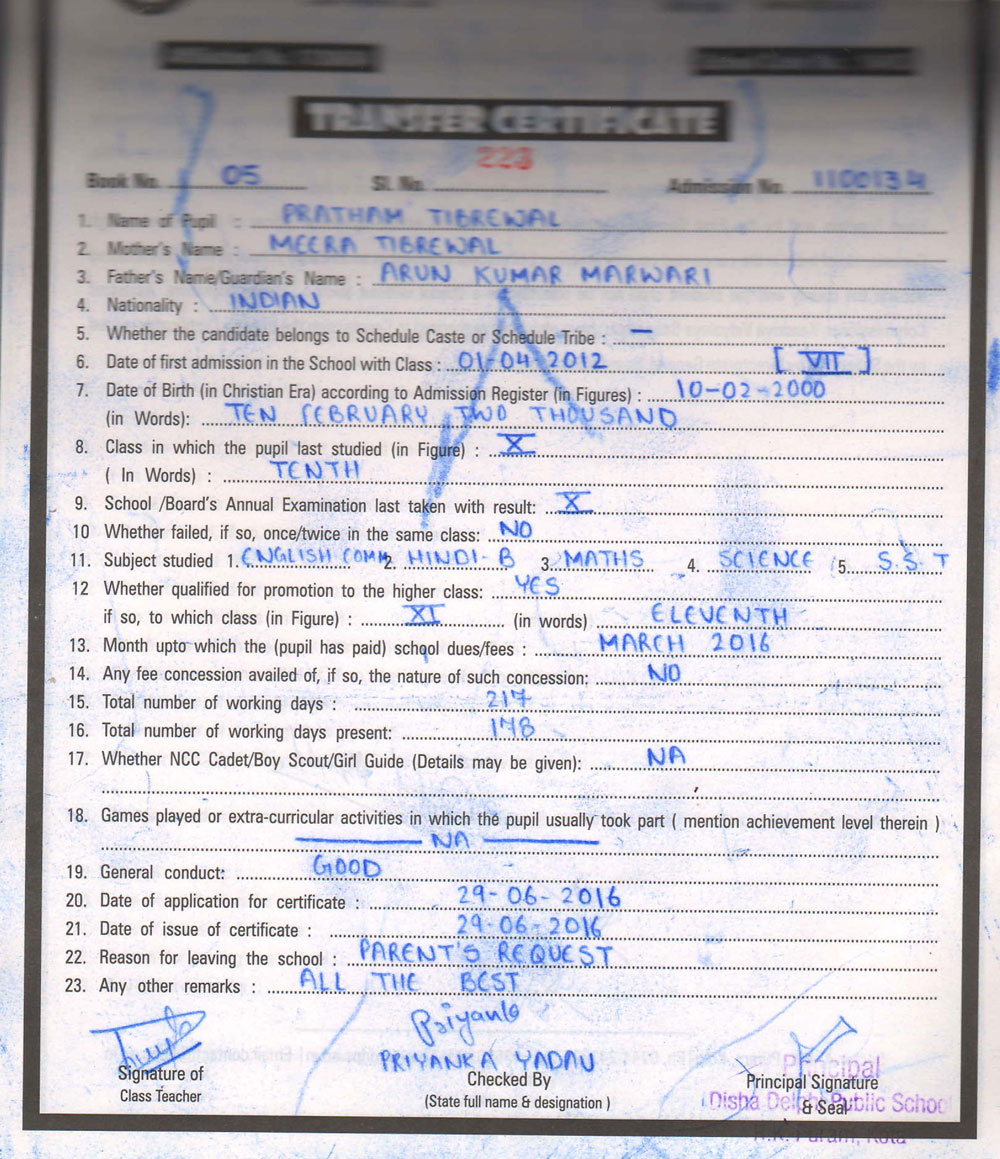 TRANSFER CERTIFICATE
223
Book No. 05 Sl. No. Admission No. 1100134
1. Name of Pupil : PRATHAM TIBREWAL
2. Mother's Name : MEERA TIBREWAL
3. Father's Name/Guardian's Name : ARUN KUMAR MARWARI
4. Nationality : INDIAN
5. Whether the candidate belongs to Schedule Caste or Schedule Tribe : —
6. Date of first admission in the School with Class : 01-04-2012 [ VII ]
7. Date of Birth (in Christian Era) according to Admission Register (in Figures) : 10-02-2000
(in Words): TEN FEBRUARY TWO THOUSAND
8. Class in which the pupil last studied (in Figure) : X
( In Words) : TENTH
9. School /Board's Annual Examination last taken with result: X
10 Whether failed, if so, once/twice in the same class: NO
11. Subject studied 1. ENGLISH COMM 2. HINDI-B 3. MATHS 4. SCIENCE 5. S.S.T
12 Whether qualified for promotion to the higher class: YES
if so, to which class (in Figure) : XI (in words) ELEVENTH
13. Month upto which the (pupil has paid) school dues/fees : MARCH 2016
14. Any fee concession availed of, if so, the nature of such concession: NO
15. Total number of working days : 217
16. Total number of working days present: 178
17. Whether NCC Cadet/Boy Scout/Girl Guide (Details may be given): NA
18. Games played or extra-curricular activities in which the pupil usually took part ( mention achievement level therein )
— NA —
19. General conduct: GOOD
20. Date of application for certificate : 29-06-2016
21. Date of issue of certificate : 29-06-2016
22. Reason for leaving the school : PARENT'S REQUEST
23. Any other remarks : ALL THE BEST
Priyanka
PRIYANKA YADAV
Signature of Class Teacher
Checked By
(State full name & designation )
Principal Signature & Seal
Principal
Disha Delphi Public School